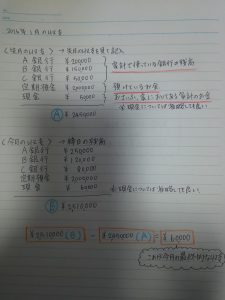 2016年1月の収支
(先月の収支) → 先月の収支を見て記入
A銀行 ¥200000
B銀行 ¥150000
C銀行 ¥50000
定期預金 ¥2000000
現金 ¥50000
家計で使っている銀行の残高
預けているお金
おさいふ、家においてある家計のお金
※現金については省略しても良い
Ⓐ ¥2450000
(今月の収支) → 締日の残高
A銀行 ¥250000
B銀行 ¥120000
C銀行 ¥80000
定期預金 ¥2000000
現金 ¥60000
※現金については省略しても良い
Ⓑ ¥2510000
¥2510000(B) - ¥2450000(A) = ¥60000
これが今月の最終的な収支